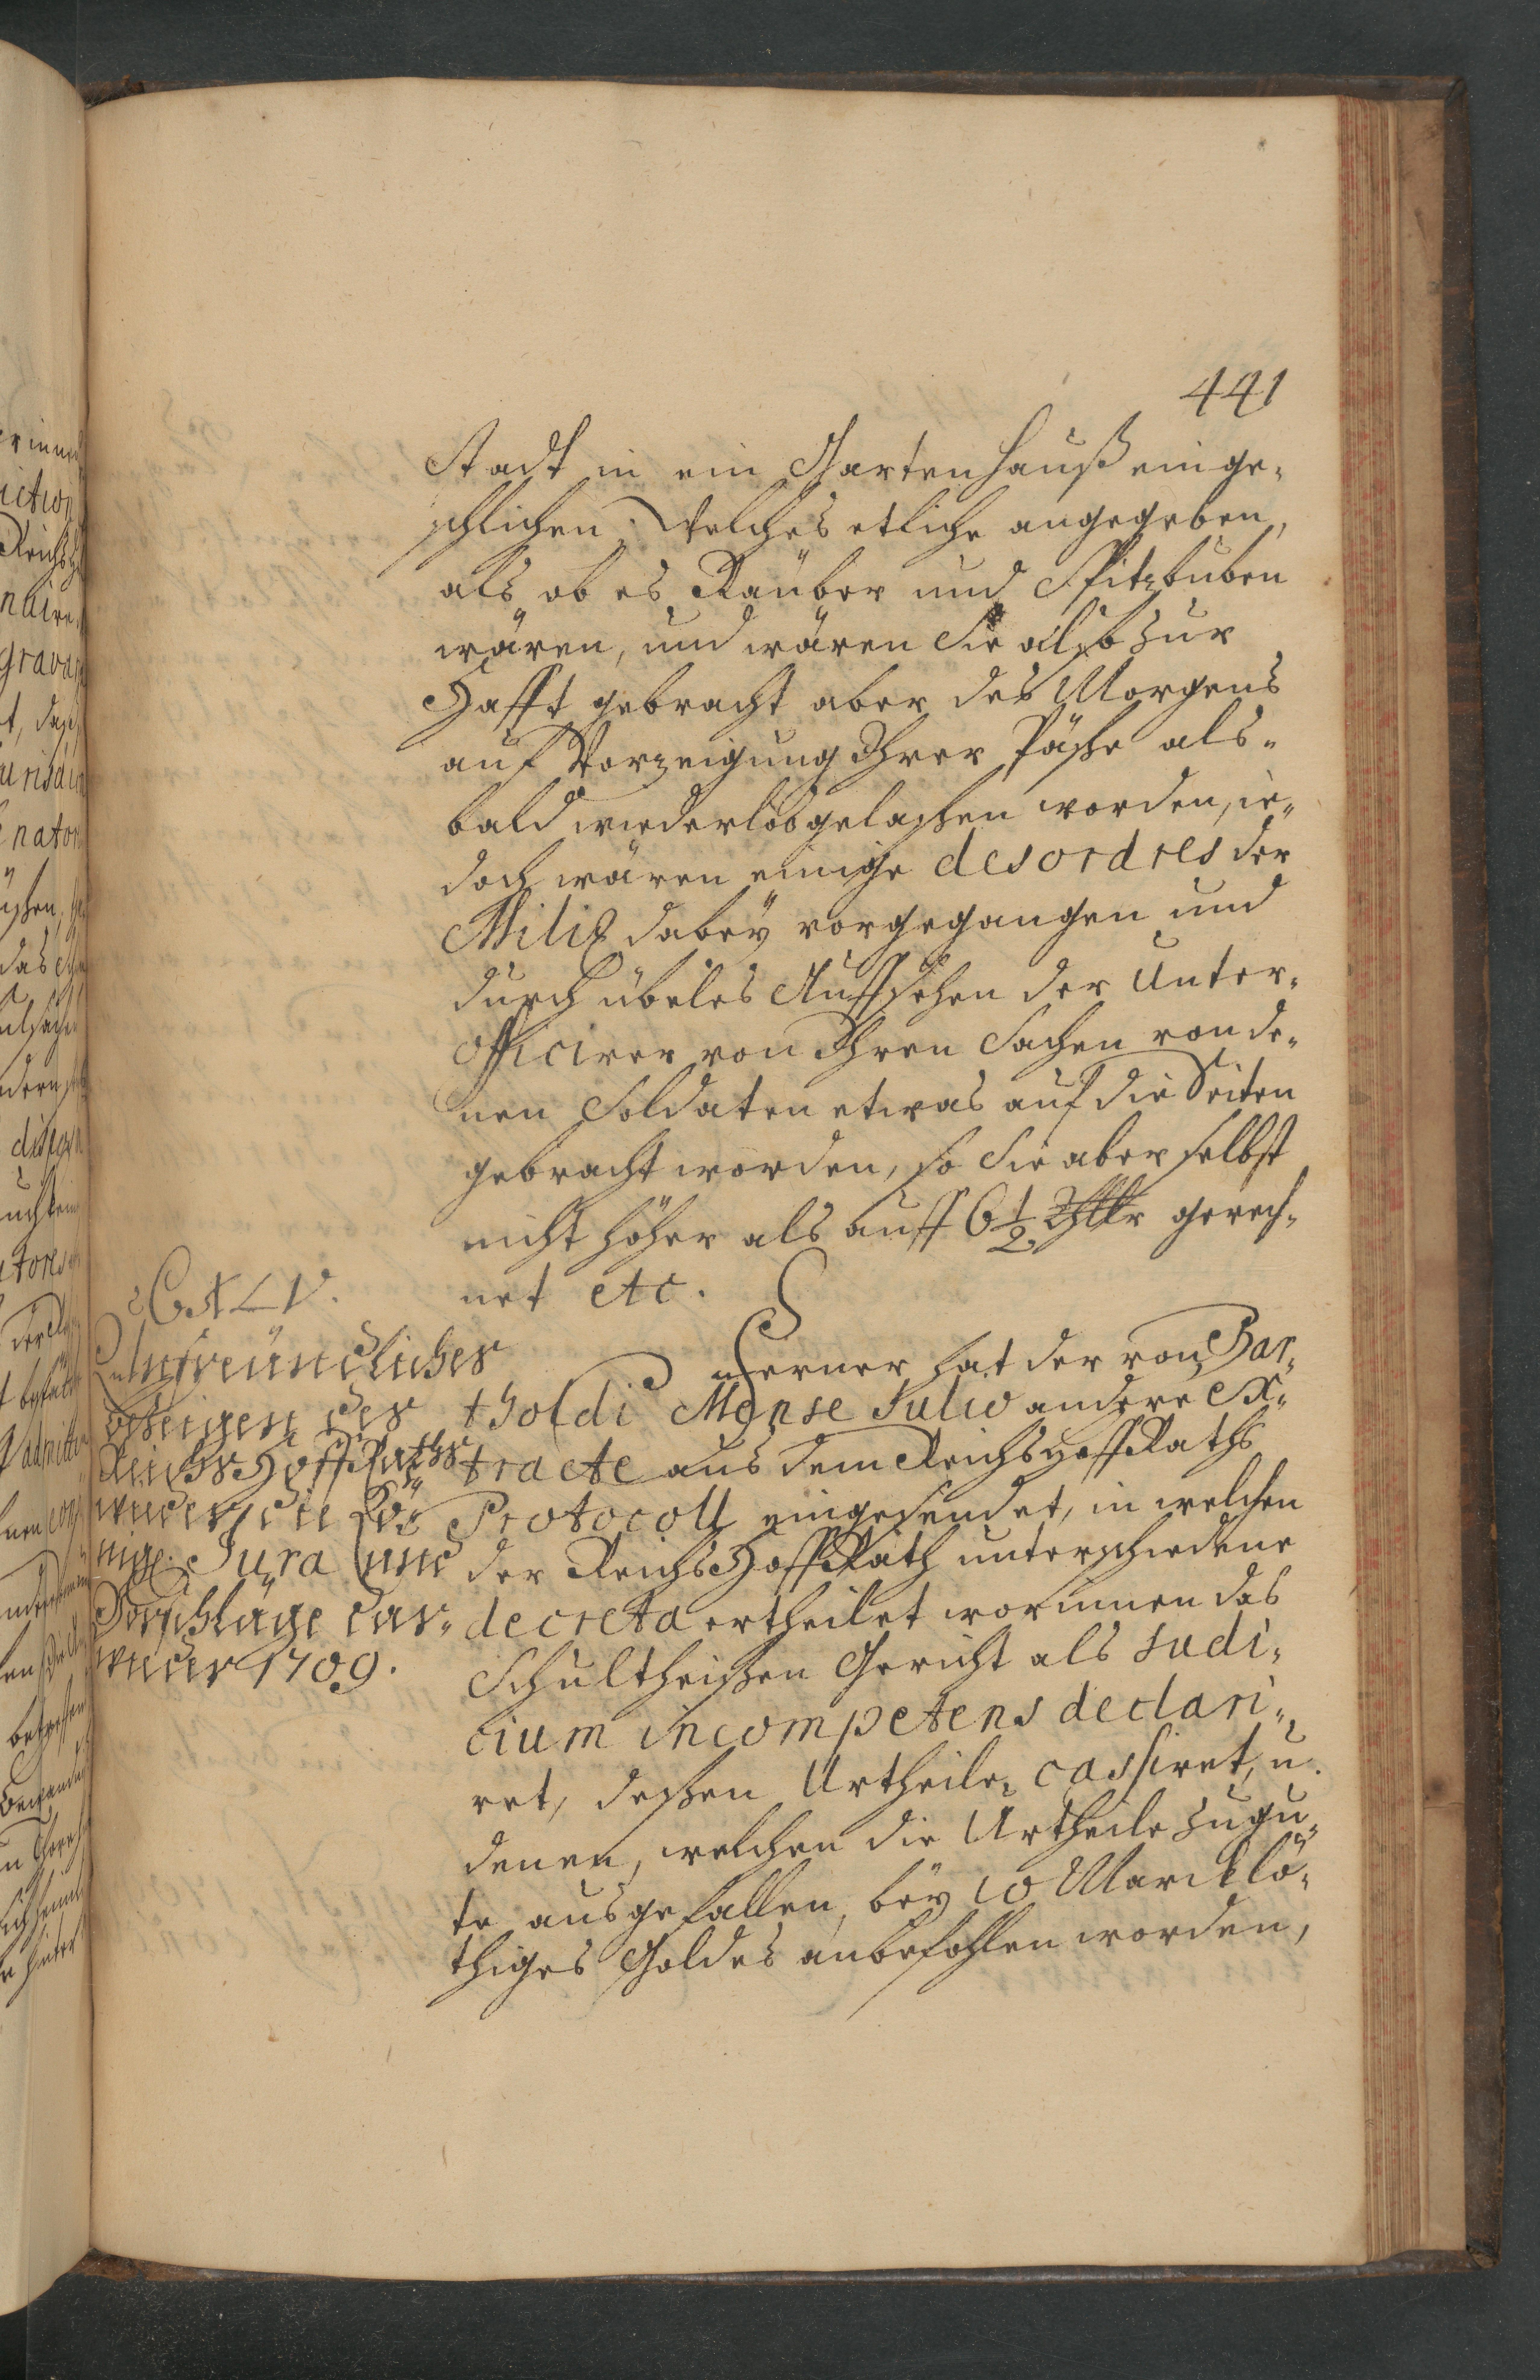 441
Stadt in ein Gartenhauß einge-
schlichen. Welches etliche angegeben,
als ob es Räuber und Spitzbuben
wären, und wären Sie also zur
Hafft gebracht aber des Morgens
auf Vorzeigung Ihrer Päße als-
bald wieder loßgelaßen worden, ie-
doch wären einige desordres der
Miliz dabeÿ vorgegangen und
durch übeles Auffsehen der Unter-
officirer von Ihren Sachen von de-
nen Soldaten etwas auf die Seiten
gebracht worden, so Sie aber selbst
nicht höher als auff 6 1/2 Thlr gerech-
net etc.
CXLV.
Unfreundliches
Bezeigen des
Reichs Hoff Raths
wieder die Kö-
nigl. Jura und
Vorschläge dar-
wieder 1709.
Ferner hat der von Bar-
tholdi Mense Julio andere Ex-
tracte aus dem Reichs Hoff Raths
Protocoll eingesendet, in welchen
der Reichs Hoff Rath unterschiedene
decreta ertheilet worinnen das
Schultheißen Gericht als Judi-
cium incompetens declari-
ret, deßen Urtheile cassiret, u.
denen, welchen die Urtheile zu gu-
te ausgefallen, beÿ 10 Marck lö-
thiges Goldes anbefohlen worden,